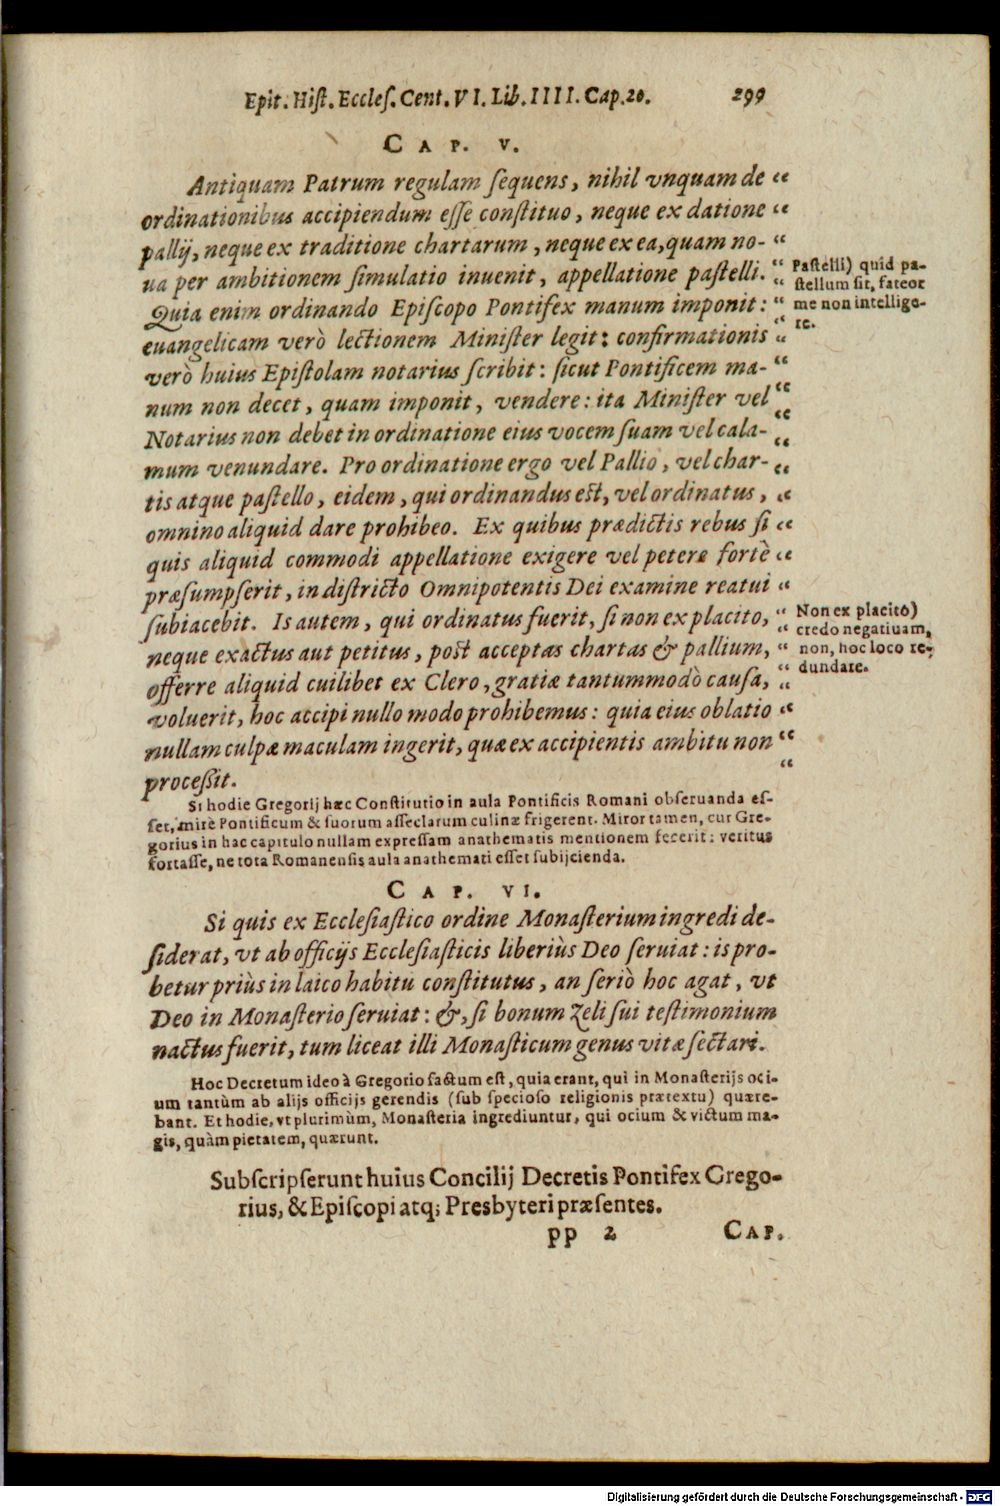 Epit. Hiſt. Eccleſ. Cent. VI. Lib. IIII. Cap. 20. 299
CAP. V.
Antiquam Patrum regulam ſequens, nihil vnquam de “
ordinationibus accipiendum eſſe conſtituo, neque ex datione “
pallij, neque ex traditione chartarum, neque ex ea, quam no- “
ua per ambitionem ſimulatio inuenit, appellatione paſtelli. “
Quia enim ordinando Epiſcopo Pontifex manum imponit: “
euangelicam verò lectionem Miniſter legit: confirmationis “
verò huius Epiſtolam notarius ſcribit: ſicut Pontificem ma- “
num non decet, quam imponit, vendere: ita Miniſter vel “
Notarius non debet in ordinatione eius vocem ſuam vel cala- “
mum venundare. Pro ordinatione ergo vel Pallio, vel char- “
tis atque paſtello, eidem, qui ordinandus eſt, vel ordinatus, “
omnino aliquid dare prohibeo. Ex quibus prædictis rebus ſi “
quis aliquid commodi appellatione exigere vel petere fortè “
præſumpſerit, in diſtricto Omnipotentis Dei examine reatui “
ſubiacebit. Is autem, qui ordinatus fuerit, ſi non ex placito, “
neque exactus aut petitus, poſt acceptas chartas & pallium, “
offerre aliquid cuilibet ex Clero, gratiæ tantummodò cauſa, “
voluerit, hoc accipi nullo modo prohibemus: quia eius oblatio “
nullam culpæ maculam ingerit, quæ ex accipientis ambitu non “
proceßit. “
Paſtelli) quid pa-
ſtellum ſit, fateor
me non intellige-
re.
Non ex placito)
credo negatiuam,
non, hoc loco re-
dundare.
Si hodie Gregorij hæc Conſtitutio in aula Pontificis Romani obſeruanda eſ-
ſet, mirè Pontificum & ſuorum aſſeclarum culinæ frigerent. Miror tamen, cur Gre-
gorius in hac capitulo nullam expreſſam anathematis mentionem fecerit: veritus
fortaſſe, ne tota Romanenſis aula anathemati eſſet ſubijcienda.
CAP. VI.
Si quis ex Eccleſiaſtico ordine Monaſterium ingredi de-
ſiderat, vt ab officijs Eccleſiaſticis liberiùs Deo ſeruiat: is pro-
betur priùs in laico habitu conſtitutus, an ſeriò hoc agat, vt
Deo in Monaſterio ſeruiat: &, ſi bonum zeli ſui teſtimonium
nactus fuerit, tum liceat illi Monaſticum genus vitæ ſectari.
Hoc Decretum ideo à Gregorio factum eſt, quia erant, qui in Monaſterijs oci-
um tantùm ab alijs officijs gerendis (ſub ſpecioſo religionis prætextu) quære-
bant. Et hodie, vt plurimùm, Monaſteria ingrediuntur, qui ocium & victum ma-
gis, quàm pietatem, quærunt.
Subſcripſerunt huius Concilij Decretis Pontifex Grego-
rius, & Epiſcopi atq; Presbyteri præſentes.
pp 2 CAP.
Digitalisierung gefördert durch die Deutsche Forschungsgemeinschaft - DFG